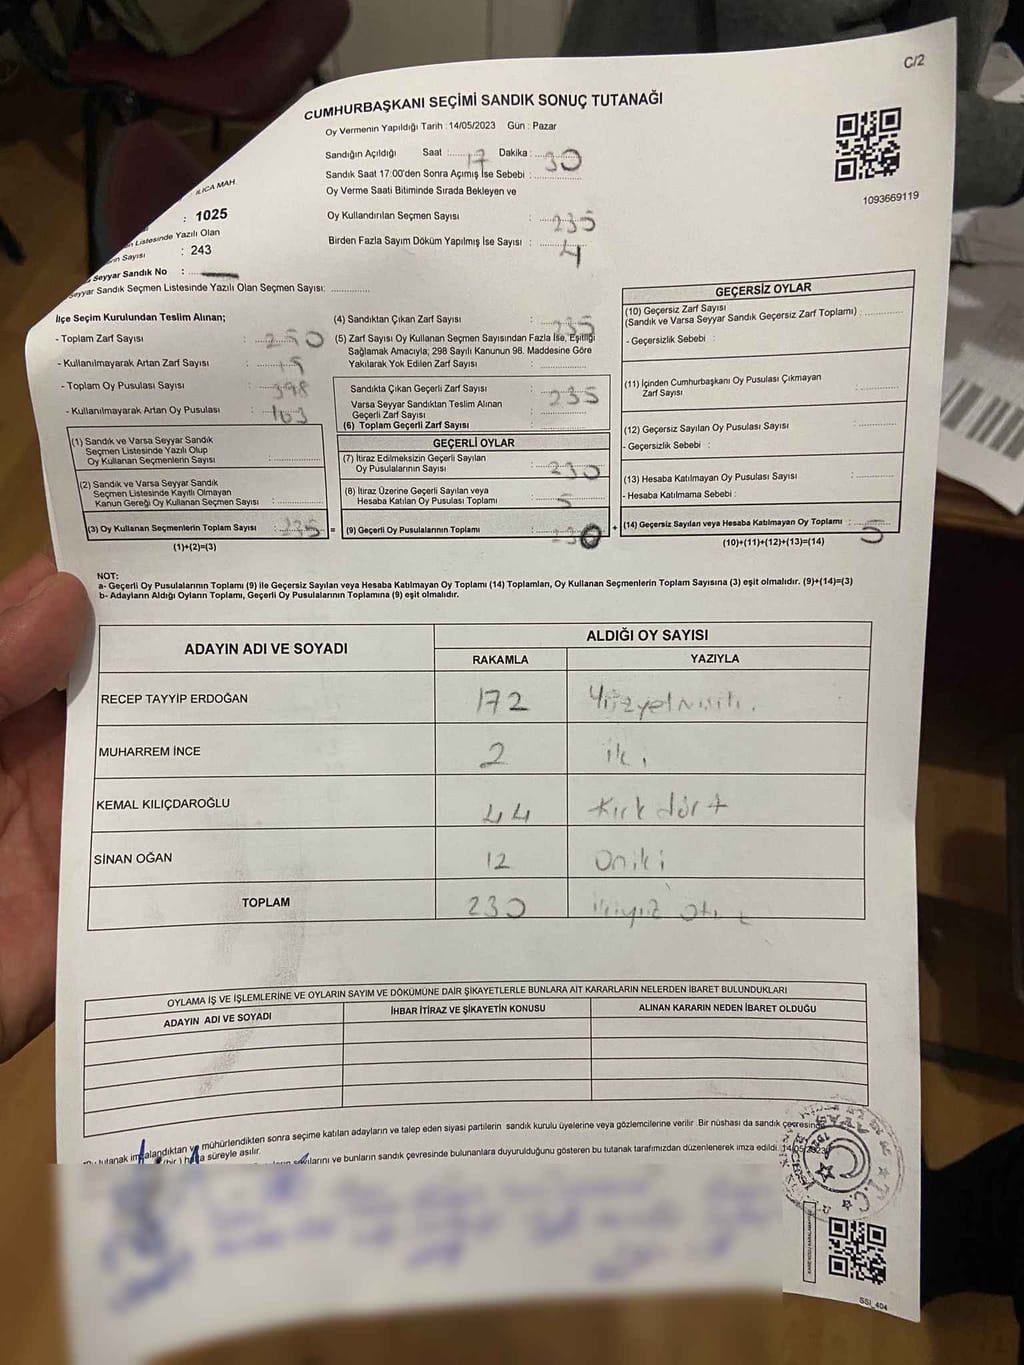 C/2
CUMHURBAŞKANI SEÇİMİ SANDIK SONUÇ TUTANAĞI
Oy Vermenin Yapıldığı Tarih : 14/05/2023 Gün : Pazar
Sandığın Açıldığı Saat : 17 Dakika : 30
Sandık Saat 17:00'den Sonra Açımış İse Sebebi :
Oy Verme Saati Bitiminde Sırada Bekleyen ve
Oy Kullandırılan Seçmen Sayısı : 235
Birden Fazla Sayım Döküm Yapılmış İse Sayısı : 4
1093669119
ILICA MAH.
: 1025
Listesinde Yazılı Olan
Sayısı : 243
Seyyar Sandık No :
Seyyar Sandık Seçmen Listesinde Yazılı Olan Seçmen Sayısı:
İlçe Seçim Kurulundan Teslim Alınan;
- Toplam Zarf Sayısı : 250
- Kullanılmayarak Artan Zarf Sayısı : 15
- Toplam Oy Pusulası Sayısı : 398
- Kullanılmayarak Artan Oy Pusulası : 163
(1) Sandık ve Varsa Seyyar Sandık
Seçmen Listesinde Yazılı Olup
Oy Kullanan Seçmenlerin Sayısı :
(2) Sandık ve Varsa Seyyar Sandık
Seçmen Listesinde Kayıtlı Olmayan
Kanun Gereği Oy Kullanan Seçmen Sayısı :
(3) Oy Kullanan Seçmenlerin Toplam Sayısı : 235
(1)+(2)=(3)
(4) Sandıktan Çıkan Zarf Sayısı : 235
(5) Zarf Sayısı Oy Kullanan Seçmen Sayısından Fazla İse, Eşitliği
Sağlamak Amacıyla; 298 Sayılı Kanunun 98. Maddesine Göre
Yakılarak Yok Edilen Zarf Sayısı :
Sandıkta Çıkan Geçerli Zarf Sayısı : 235
Varsa Seyyar Sandıktan Teslim Alınan
Geçerli Zarf Sayısı :
(6) Toplam Geçerli Zarf Sayısı :
GEÇERLİ OYLAR
(7) İtiraz Edilmeksizin Geçerli Sayılan
Oy Pusulalarının Sayısı : 230
(8) İtiraz Üzerine Geçerli Sayılan veya
Hesaba Katılan Oy Pusulası Toplamı : 5
= (9) Geçerli Oy Pusulalarının Toplamı : 230 +
GEÇERSİZ OYLAR
(10) Geçersiz Zarf Sayısı
(Sandık ve Varsa Seyyar Sandık Geçersiz Zarf Toplamı) :
- Geçersizlik Sebebi :
(11) İçinden Cumhurbaşkanı Oy Pusulası Çıkmayan
Zarf Sayısı :
(12) Geçersiz Sayılan Oy Pusulası Sayısı :
- Geçersizlik Sebebi :
(13) Hesaba Katılmayan Oy Pusulası Sayısı :
- Hesaba Katılmama Sebebi :
(14) Geçersiz Sayılan veya Hesaba Katılmayan Oy Toplamı : 5
(10)+(11)+(12)+(13)=(14)
NOT:
a- Geçerli Oy Pusulalarının Toplamı (9) ile Geçersiz Sayılan veya Hesaba Katılmayan Oy Toplamı (14) Toplamları, Oy Kullanan Seçmenlerin Toplam Sayısına (3) eşit olmalıdır. (9)+(14)=(3)
b- Adayların Aldığı Oyların Toplamı, Geçerli Oy Pusulalarının Toplamına (9) eşit olmalıdır.
ADAYIN ADI VE SOYADI ALDIĞI OY SAYISI
RAKAMLA YAZIYLA
RECEP TAYYİP ERDOĞAN 172 Yüzyetmişiki
MUHARREM İNCE 2 iki
KEMAL KILIÇDAROĞLU 44 Kırk dört
SİNAN OĞAN 12 Oniki
TOPLAM 230 ikiyüz otuz
OYLAMA İŞ VE İŞLEMLERİNE VE OYLARIN SAYIM VE DÖKÜMÜNE DAİR ŞİKAYETLERLE BUNLARA AİT KARARLARIN NELERDEN İBARET BULUNDUKLARI
ADAYIN ADI VE SOYADI İHBAR İTİRAZ VE ŞİKAYETİN KONUSU ALINAN KARARIN NEDEN İBARET OLDUĞU
tutanak imzalandıktan ve mühürlendikten sonra seçime katılan adayların ve talep eden siyasi partilerin sandık kurulu üyelerine veya gözlemcilerine verilir. Bir nüshası da sandık çevresinde
(bir) hafta süreyle asılır.
ve bunların sandık çevresinde bulunanlara duyurulduğunu gösteren bu tutanak tarafımızdan düzenlenerek imza edildi. 14/05/2023
T.C.
SSI_404